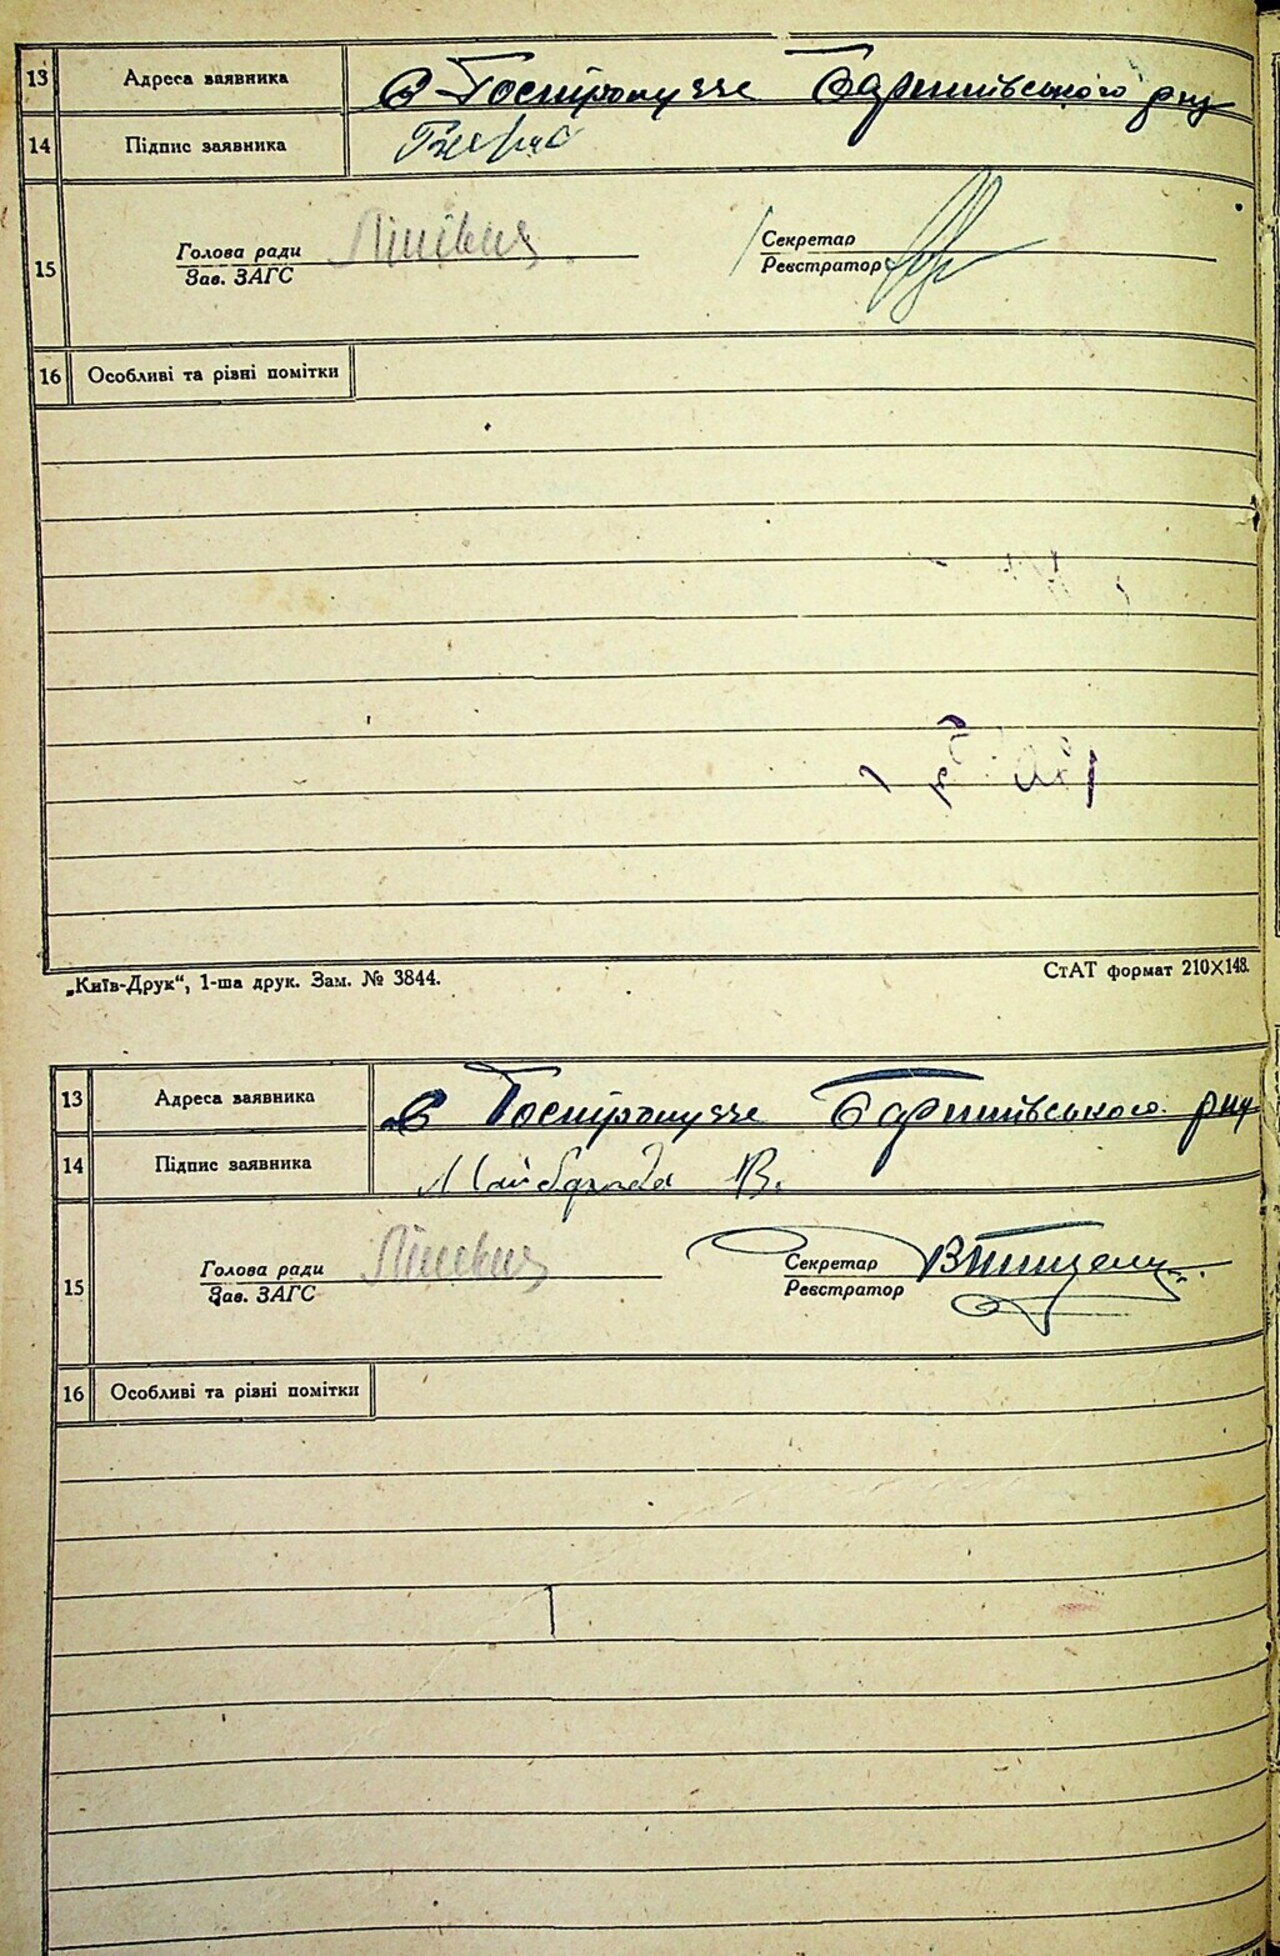 13 Адреса заявника с Гостролуччя Баришівського р-ну
14 Підпис заявника
15 Голова ради Секретар
Зав. ЗАГС Реєстратор
16 Особливі та різні помітки
„Київ-Друк“, 1-ша друк. Зам. № 3844. СтАТ формат 210X148.
13 Адреса заявника с Гостролуччя Баришівського р-ну
14 Підпис заявника Майборода В.
15 Голова ради Секретар
Зав. ЗАГС Реєстратор
16 Особливі та різні помітки